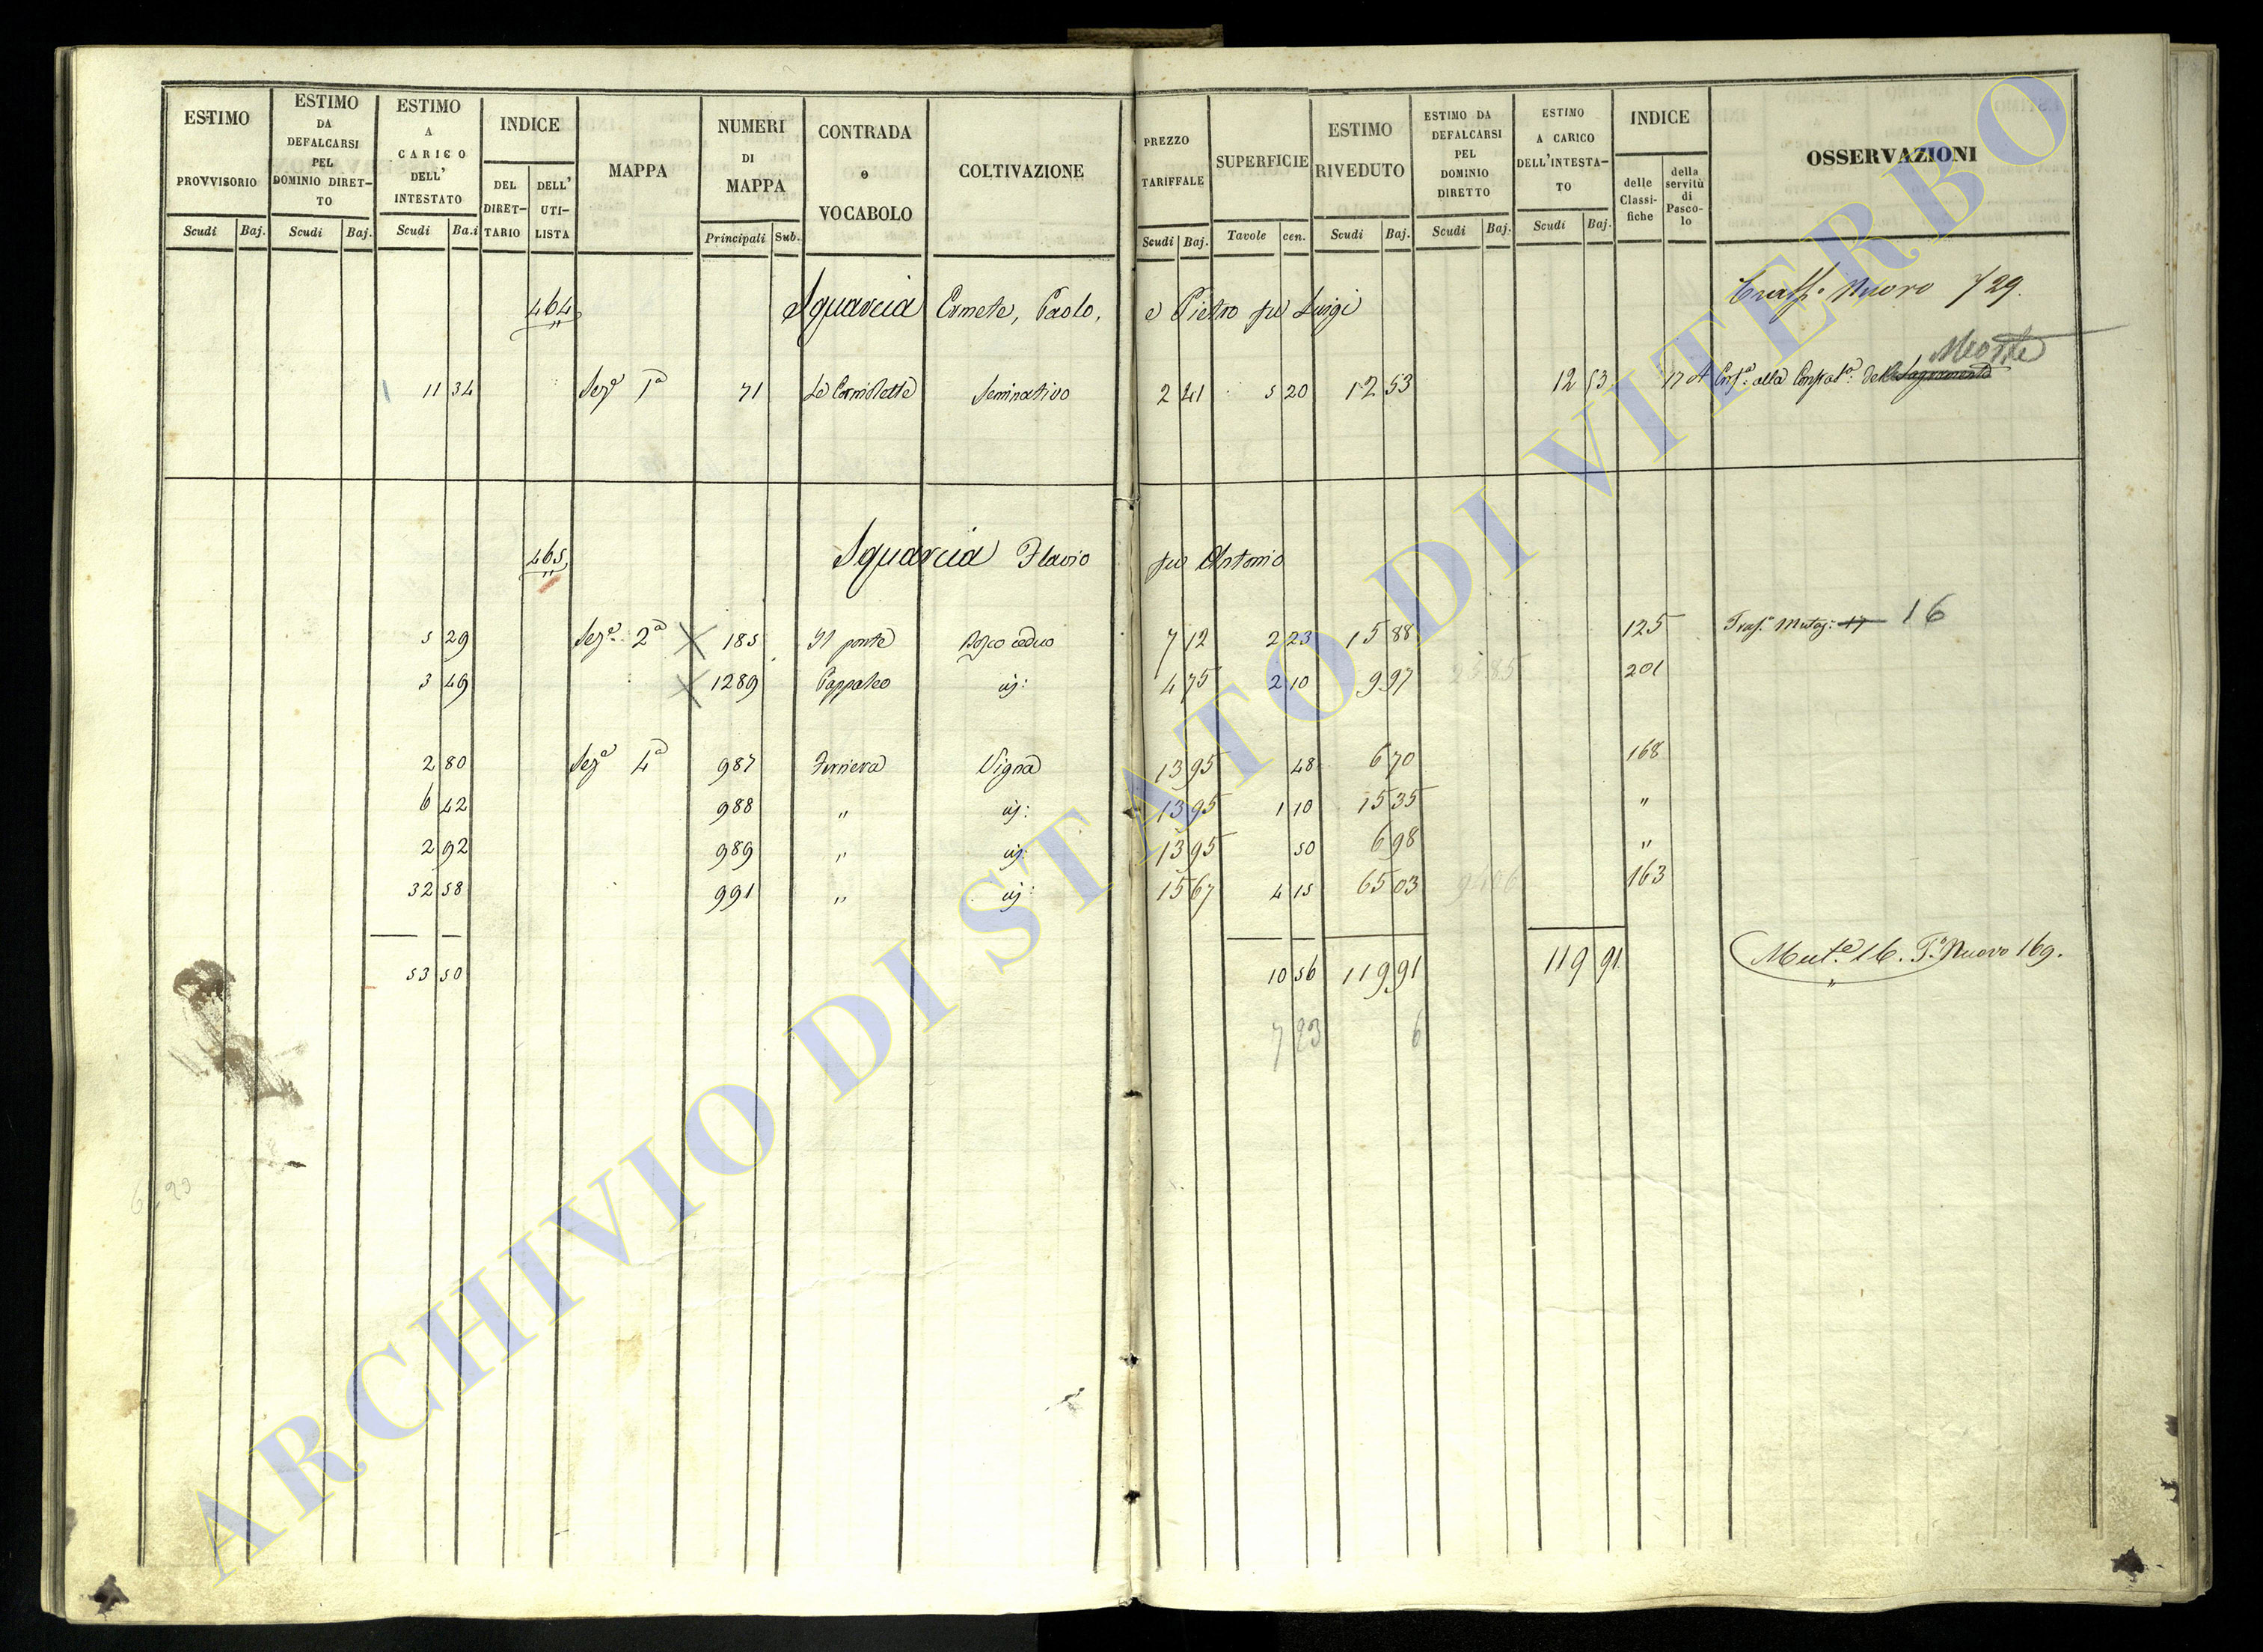 ESTIMO PROVVISORIO Scudi Baj.
ESTIMO DA DEFALCARSI PEL DOMINIO DIRET-TO Scudi Baj.
ESTIMO A CARICO DELL' INTESTATO Scudi Ba.i
INDICE DEL DIRET-TARIO DELL' UTI-LISTA
MAPPA
NUMERI DI MAPPA Principali Sub.
CONTRADA o VOCABOLO
COLTIVAZIONE
PREZZO TARIFFALE Scudi Baj.
SUPERFICIE Tavole cen.
ESTIMO RIVEDUTO Scudi Baj.
ESTIMO DA DEFALCARSI PEL DOMINIO DIRETTO Scudi Baj.
ESTIMO A CARICO DELL'INTESTA-TO Scudi Baj.
INDICE delle Classi-fiche della servitù di Pasco-lo
OSSERVAZIONI
464 Squarcia Ermete, Paolo, e Pietro fu Luigi Nuovo 729.
Monte
11 34 Sez.e 1a 71 Seminativo 2 41 5 20 12 53 12 53 17 alla
465 Squarcia Flavio fu Antonio
5 29 Sez.e 2a 185 Il ponte Bosco ceduo 7 12 2 23 15 88 125 Mutaz: 17 16
3 49 1289 Pappaleo id: 4 75 2 10 9 97 25 85 201
2 80 Sez.e 4a 987 Vigna 13 95 48 6 70 168
6 42 988 " id: 13 95 1 10 15 35 "
2 92 989 " id: 13 95 50 6 98 "
32 58 991 " id: 15 67 4 15 65 03 163
53 50 10 56 119 91 119 91 Mut.e 16. T.o Nuovo 169.
7 23 6
ARCHIVIO DI STATO DI VITERBO